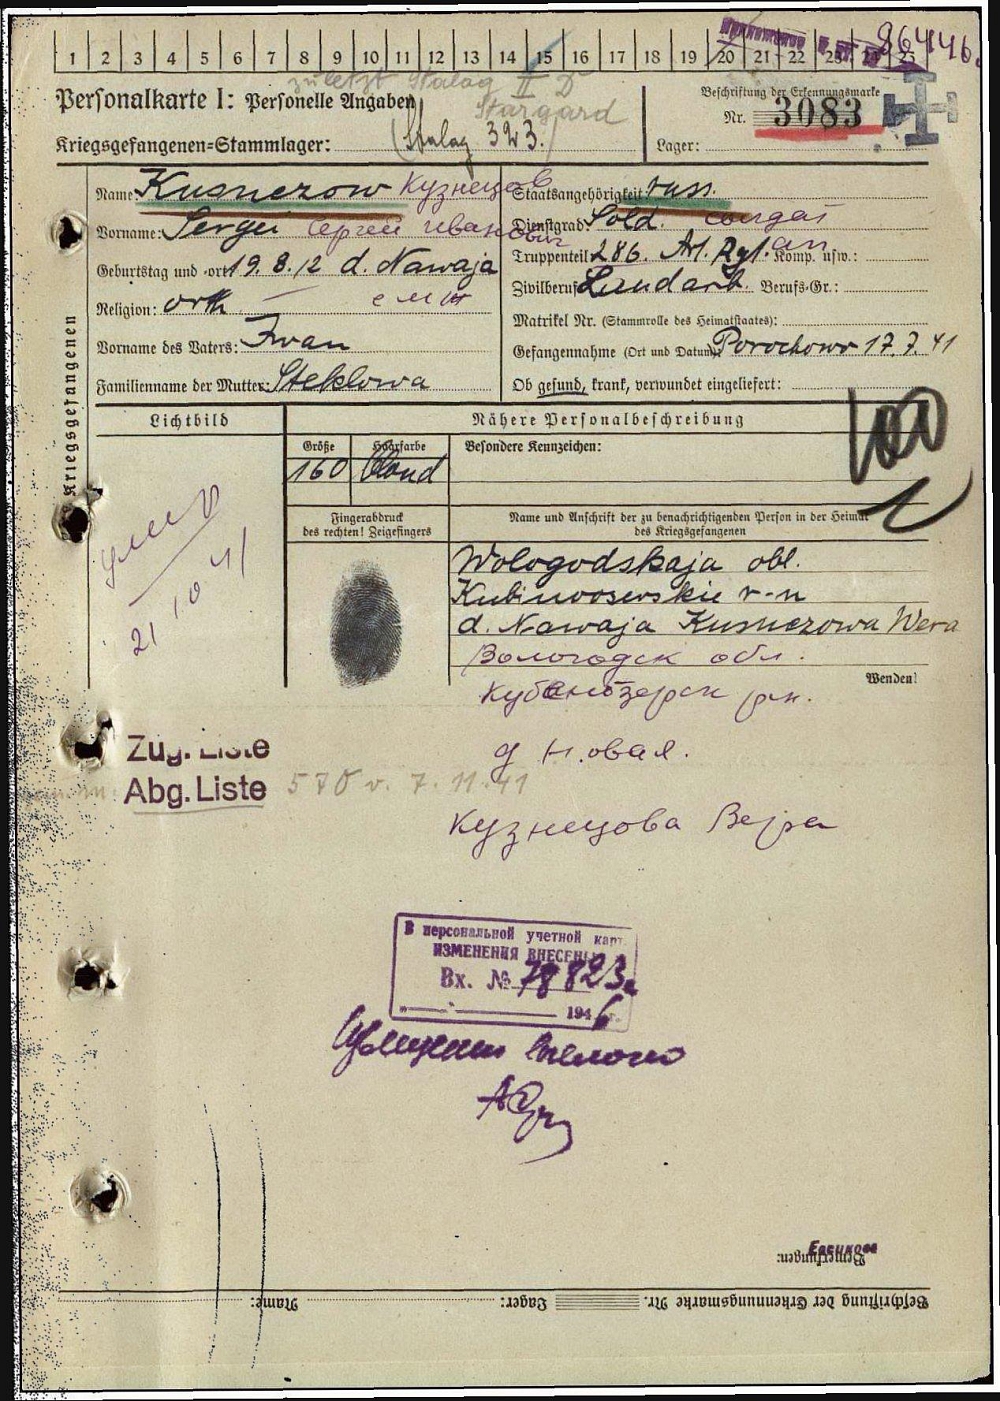 1 2 3 4 5 6 7 8 9 10 11 12 13 14 15 16 17 18 19 20 21 22 23 24 25
86446
zuletzt Stalag II D
Stargard
Personalkarte I: Personelle Angaben
Kriegsgefangenen=Stammlager: (Stalag 323.
Beschriftung der Erkennungsmarke
Nr. 3083
Lager:
Name: Kusnezow Кузнецов
Vorname: Sergei Сергей Иванович
Geburtstag und -ort 19.8.12 d. Nawaja
Religion: orth
Vorname des Vaters: Iwan
Familienname der Mutter: Steklowa
Staatsangehörigkeit russ.
Dienstgrad Sold. солдат
Truppenteil 286. Art. Rgt. Komp. usw.:
Zivilberuf Landarb. Berufs-Gr.:
Matrikel Nr. (Stammrolle des Heimatstaates):
Gefangennahme (Ort und Datum): Porochowo 17.7.41
Ob gesund, krank, verwundet eingeliefert:
Kriegsgefangenen
Lichtbild
Nähere Personalbeschreibung
Größe
160
Haarfarbe
blond
Besondere Kennzeichen:
Fingerabdruck
des rechten! Zeigefingers
Name und Anschrift der zu benachrichtigenden Person in der Heimat
des Kriegsgefangenen
Wologodskaja obl.
Kubinoosewskie r-n
d. Nawaja Kusnezowa Wera
Вологодск обл.
Wenden!
Кубеноозерск рн.
д Новая.
Кузнецова Вера
умер
21 10 41
Zug. Liste
Abg. Liste 570 v. 7.11.41
В персональной учетной карт.
ИЗМЕНЕНИЯ ВНЕСЕНЫ
Вх. № 78823
1946 г.
Bemerkungen:
Beschriftung der Erkennungsmarke Nr. Lager: Name: